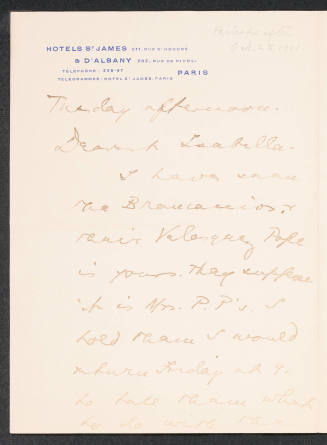 Perhaps after
Oct. 28, 1901
HOTELS ST JAMES 211, RUE ST HONORÉ
& D'ALBANY 202, RUE DE RIVOLI
TELEPHONE: 238-97
TELEGRAMMES: HOTEL ST JAMES. PARIS
PARIS
Tuesday afternoon.
Dearest Isabella.
I have seen
the Bramanios, &
their Velasquez Pope
is yours. They suppose
it is Mrs. P.P's. I
told them I would
return Friday at 9.
to tell them what
to do with the